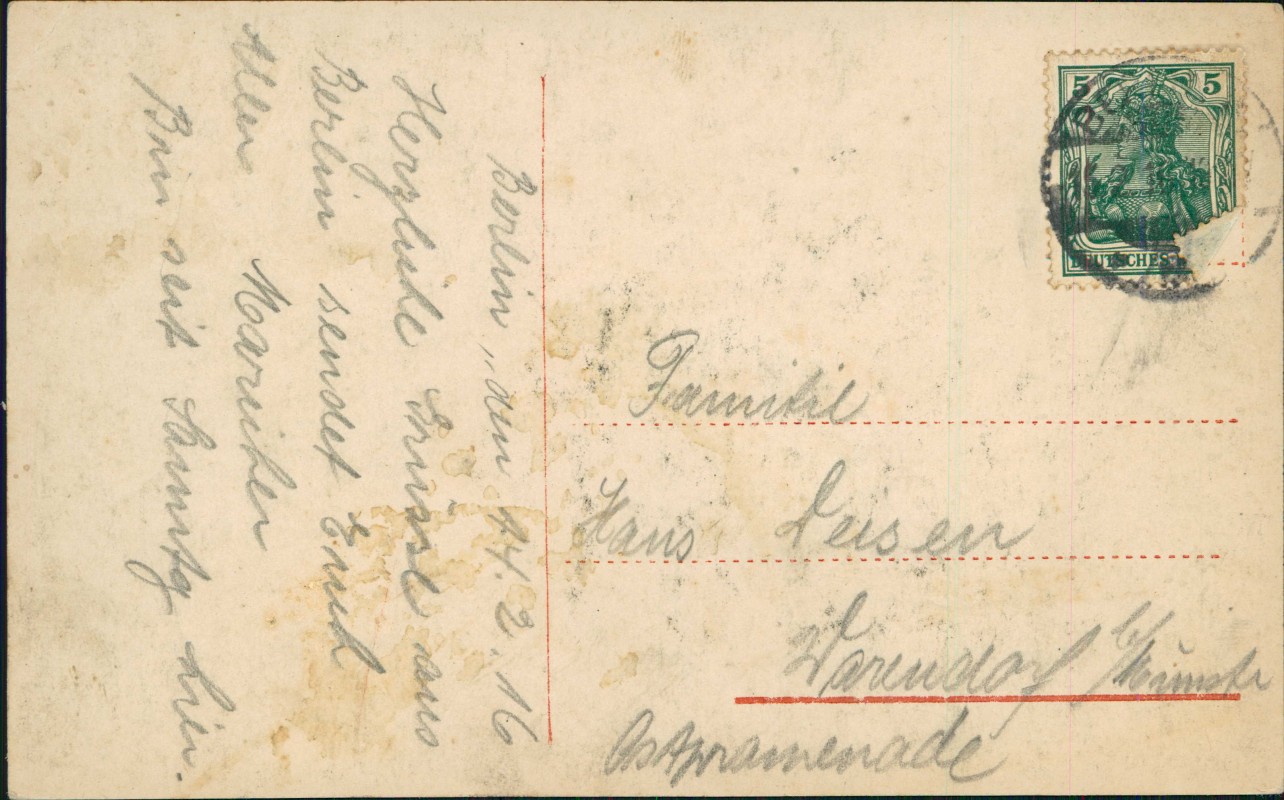 Berlin, den 14.2.16
Herzliche Grüsse aus
Berlin sendet Euch
Allen
Bin seit Samstg hier.
5 5
DEUTSCHES
Familie
Hans Deisen
Warendorf b/
Ostpromenade